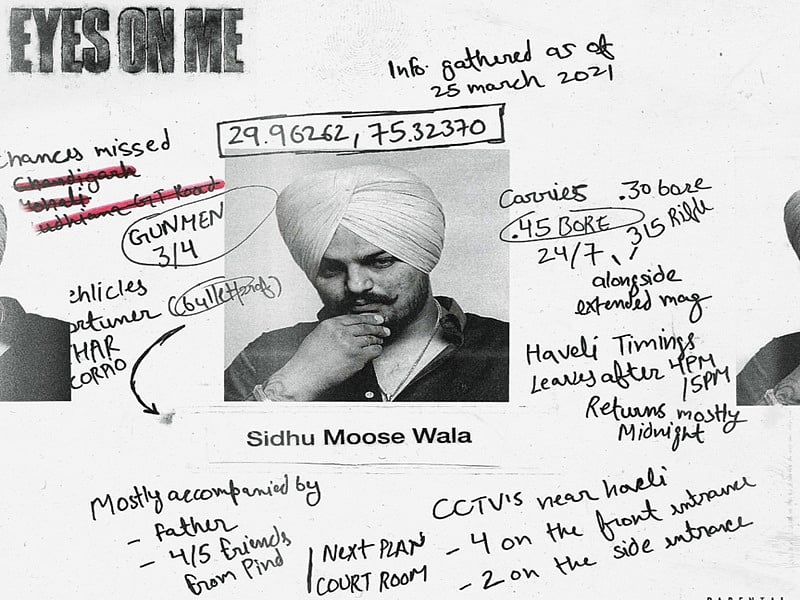 EYES ON ME
Info. gathered as of
25 march 2021
29.96262, 75.32370
Chances missed
Chandigarh
Mohali
udhiana GT Road
GUNMEN
3/4
ehlicles
ortuner (bulletproof)
HAR
CORPIO
Carries .30 bore
.45 BORE 315 Rifle
24/7
alongside
extended mag
Haveli Timings
Leaves after 4PM
/5PM
Returns mostly
Midnight
Sidhu Moose Wala
Mostly accompanied by
- father
- 4/5 friends
from Pind
Next PLAN
COURT ROOM
CCTV's near haveli
- 4 on the front entrance
- 2 on the side entrance